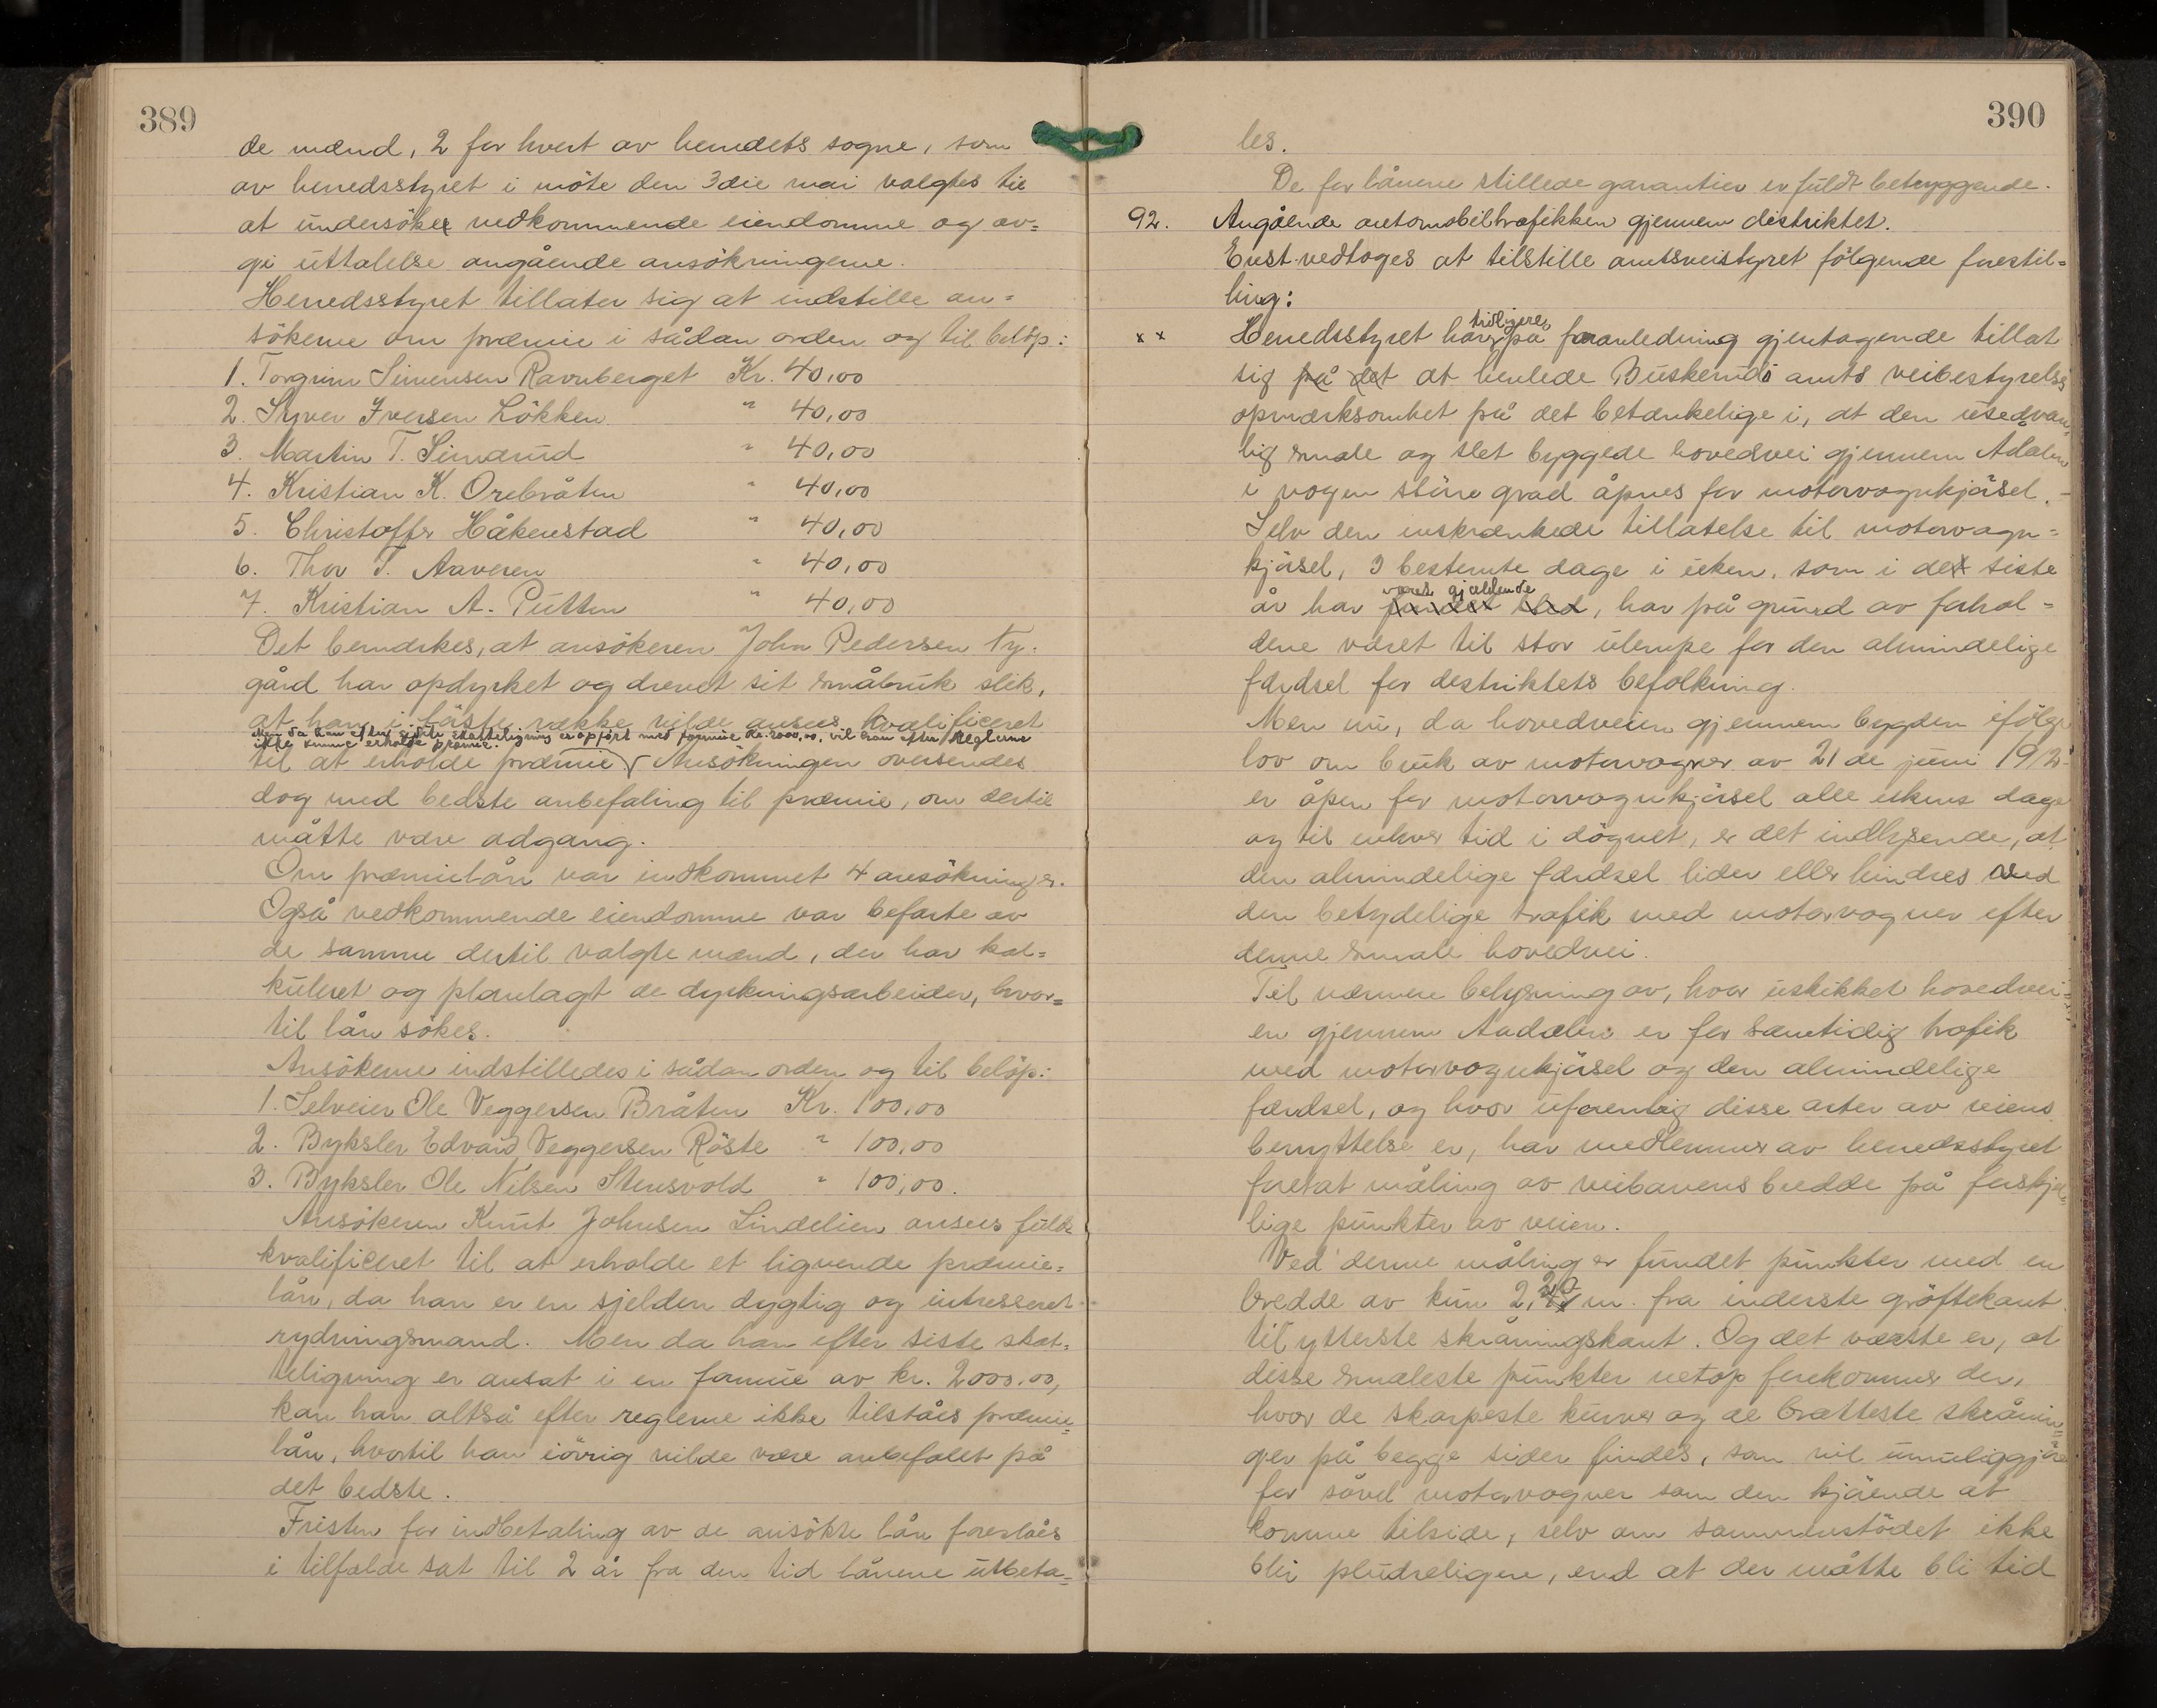 389
de mænd, 2 for hvert av herredets sogne, som
av herredsstyret i möte den 3die mai valgtes til
at undersöke vedkommende eiendomme og av=
gi uttalelse angående ansökningerne.
Herredsstyret tillater sig at indstille an=
sökerne om præmie i sådan orden og til belöp:
1. Torgrim Simensen Ravnberget Kr. 40,00
2. Syver Iversen Lökken " 40,00
3. Martin T. Simarud " 40,00
4. Kristian K. Orebråten " 40,00
5. Christoffer Håkenstad " 40,00
6. Thor T. Aaveren " 40,00
7. Kristian A. Putten " 40,00
Det bemærkes, at ansökeren John Pedersen Ny-
gård har opdyrket og drevet sit småbruk slik,
at han i förste række vilde ansees kvalificeret
Men da han efter sidste skatteligning er opfört med formue kr. 2000,00, vil han efter reglerne
ikke kunne erholde præmie.
til at erholde præmie. Ansökningen oversendes
dog med bedste anbefaling til præmie, om dertil
måtte være adgang.
Om præmielån var indkommet 4 ansökninger.
Også vedkommende eiendomme var befarte av
de samme dertil valgte mænd, der har kal=
kuleret og planlagt de dyrkningsarbeider, hvor=
til lån sökes.
Ansökerne indstilledes i sådan orden og til belöp:
1. Selveier Ole Veggersen Bråten Kr. 100,00
2. Byksler Edvard Veggersen Röste " 100,00
3. Byksler Ole Nilsen Stensvold " 100,00.
Ansökeren Knut Johnsen Lindelien ansees fuldt
kvalificeret til at erholde et lignende præmie=
lån, da han er en sjelden dygtig og intresseret
rydningsmand. Men da han efter siste skat=
teligning er ansat i en formue av kr. 2000.00,
kan han altså efter reglerne ikke tilståes præmie=
lån, hvortil han iövrig vilde være anbefalet på
det bedste.
Fristen for indbetaling av de ansökte lån foreslåes
i tilfælde sat til 2 år fra den tid lånene utbeta=
390
les.
De for lånene stillede garantier er fuldt betryggende.
92. Angående automobiltrafikken gjennem distriktet.
Enst. vedtoges at tilstille amtsveistyret fölgende forestil=
ling:
x x Herredsstyret har tidligere på foranledning gjentagende tillat
sig på det at henlede Buskeruds amts veibestyrelses
opmærksomhet på det betænkelige i, at den usedvan=
lig smale og slet byggede hovedvei gjennem Ådalen
i nogen större grad åpnes for motorvognkjörsel. -
Selv den inskrænkede tillatelse til motorvogn=
kjörsel, 3 bestemte dage i uken, som i det siste
været gjældende
år har fundet sted, har på grund av forhol=
dene været til stor ulempe for den almindelige
færdsel for destriktets befolkning.
Men nu, da hovedveien gjennem bygden ifölge
lov om bruk av motorvogner av 21 de juni 1912
er åpen for motorvognkjörsel alle ukens dage
og til enhver tid i dögnet, er det indlysende, at
den almindelige færdsel lider eller hindres ved
den betydelige trafik med motorvogner efter
denne smale hovedvei.
Til nærmere belysning av, hvor uskikket hovedvei=
en gjennem Aadalen er for samtidig trafik
med motorvognkjörsel og den almindelige
færdsel, og hvor uforenlig disse arter av veiens
benyttelse er, har medlemmer av herredsstyret
foretat måling av veibanens bredde på forskjel=
lige punkter av veien.
Ved denne måling er fundet punkter med en
bredde av kun 2,20 m. fra inderste gröftekant
til ytterste skråningskant. Og det værste er, at
disse smaleste punkter netop forekommer der,
hvor de skarpeste kurver og de bratteste skrånin=
ger på begge sider findes, som vil umuliggjöre
for såvel motorvogner som den kjörende at
komme tilside, selv om sammenstödet ikke
blir pludseligere, end at der måtte bli tid